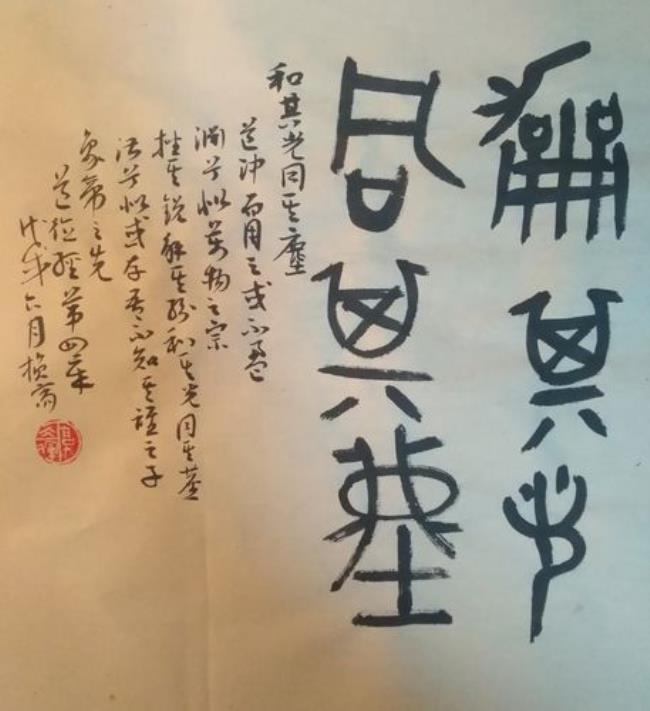 龢其光
同其塵
和其光同其塵
道冲而用之或不盈
渊兮似萬物之宗
挫其锐解其纷和其光同其塵
湛兮似或存吾不知其谁之子
象帝之先
道德經第四章
戊戌六月